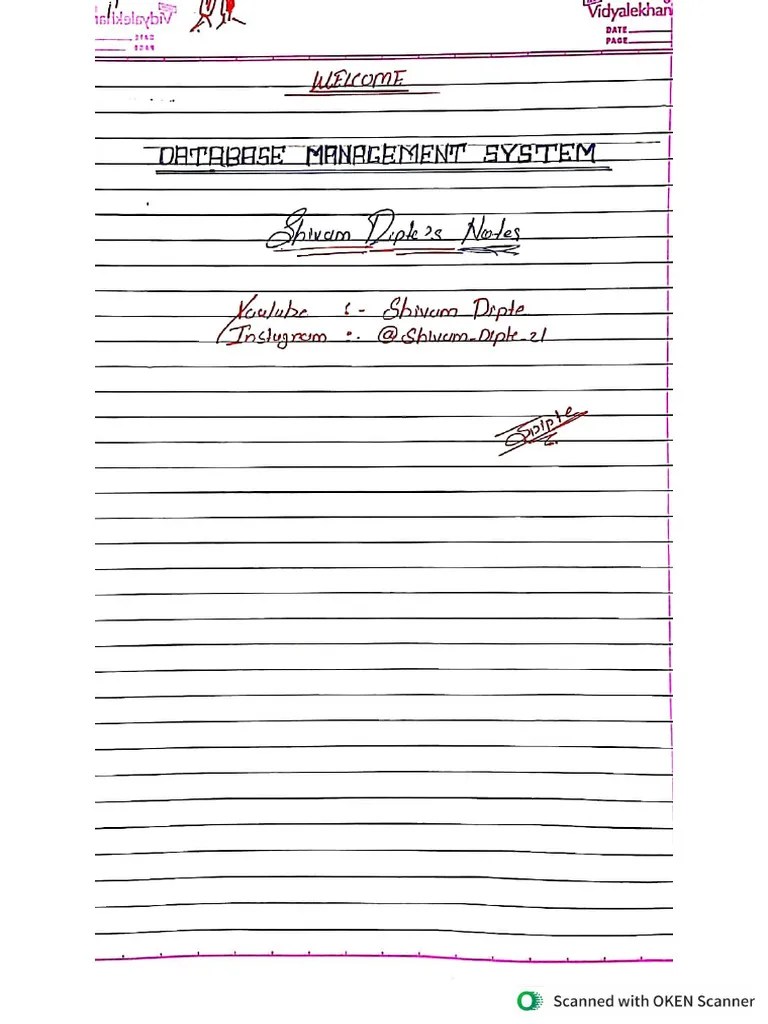 Vidyalekhan
DATE
PAGE
WELCOME
DATABASE MANAGEMENT SYSTEM
Shivam Dipte's Notes
Youtube :- Shivam Dipte
Instagram :- @Shivam_Dipte_21
SDipte
Scanned with OKEN Scanner